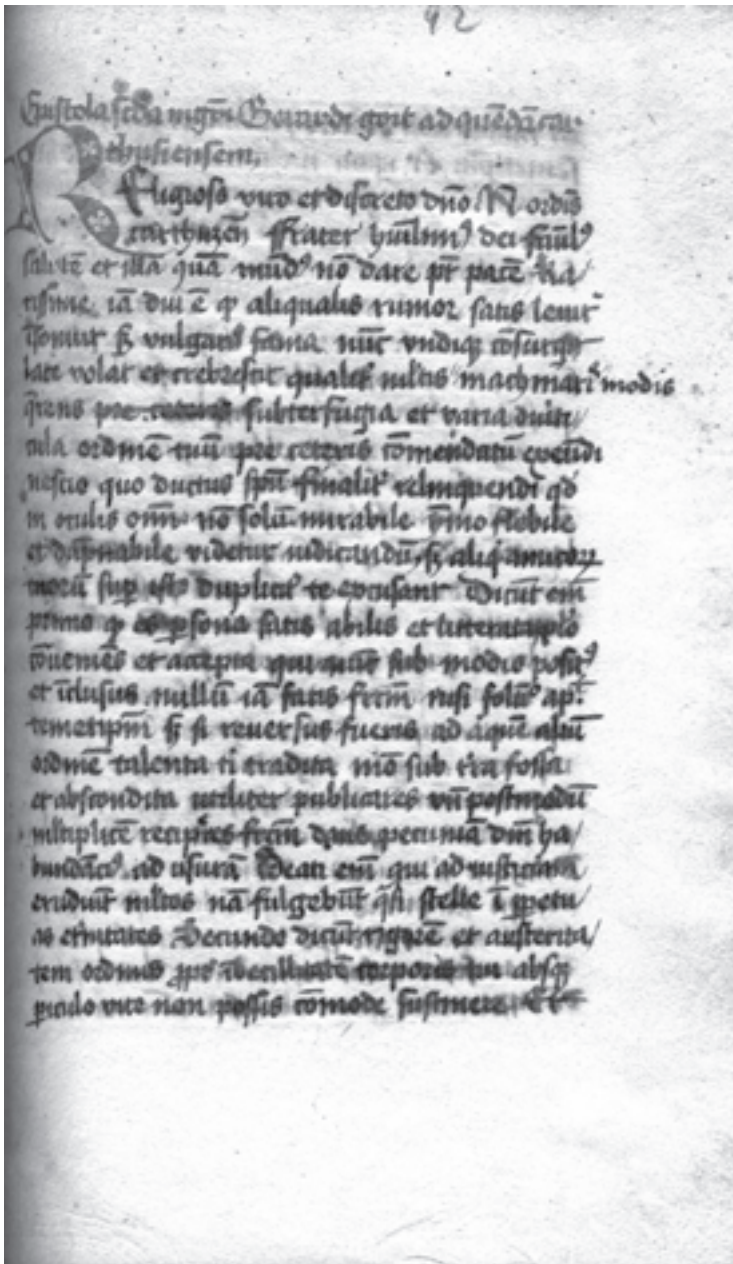 42
Epistola scda mgri Gerardi grot ad quēdā car
thusiensem,
Religioso viro et discreto dño N ordis
carthuzeñ Frater humlim⁹ dei fmul⁹
salutē et illā quā mūd⁹ nō dare pt pacē Ka/
rissime iā diu ē qp aliqualis rumor satis leuit
īsonuit sʒ vulgaris fama nūc vndiqʒ cōsurgēs
late volat et crebrescit qualit mltis machinaris modis
qrens subterfugia et varia diuti/
cula ordinē tuū pre ceteris cōmendatū euadēdi
nescio quo ductus spū finalit relinquendi qd
in oculis oīm nō solū mirabile ymo flebile
et dāpnabile videtur iudicandū, sʒ aliq amicorꝝ
tuorū sup isto duplicit te excusant Dicūt em
primo qp es psona satis abilis et
cōueniēs et accepta qui nūc sub modio posit⁹
et īclusus nullū iā satis frcm nisi solū ap
temetipm sʒ si reuersus fueris ad aliū
ordinē talenta ti tradita nō sub tra fossa
et abscondita vtiliter publicares vñ postmodū
mltiplicē reciperes frcm dans pecuniā dni ha/
bundāci⁹ ad vsurā Beati em qui ad iusticiam
erudiūt mltos nā fulgebūt qsi stelle ī ppetu/
as etnitates Secundo dicūt rigorē et austerita/
tem ordinis ppt ībecillitatē corporis tui absqʒ
piculo vite non possis cōmode sustinere Et